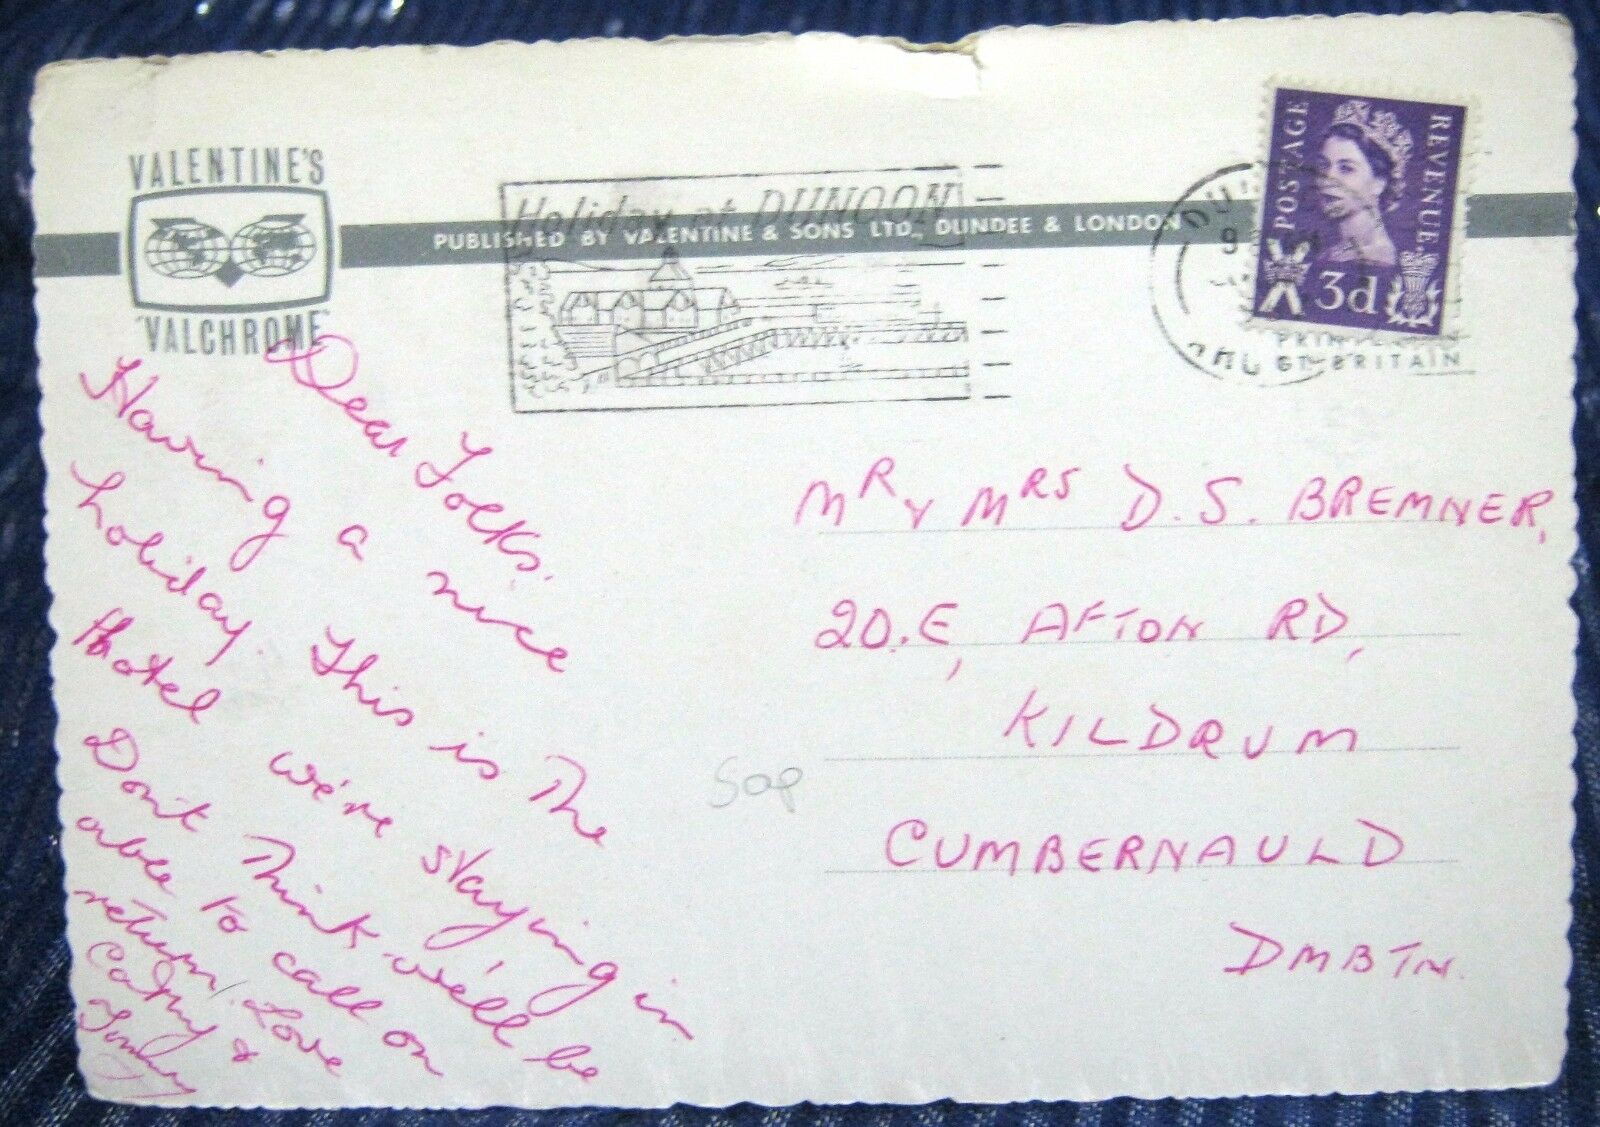 VALENTINE'S
"VALCHROME"
Holiday at DUNOON
PUBLISHED BY VALENTINE & SONS LTD., DUNDEE & LONDON
POSTAGE
REVENUE
3d
GT. BRITAIN
Dear Folks.
Having a nice
holiday. This is The
hotel we're staying in
Don't Think we'll be
able to call on
return. Love
Cathy &
Tommy
MR & MRS D. S. BREMNER,
20.E, AFTON RD,
KILDRUM
CUMBERNAULD
DMBTN.
50p